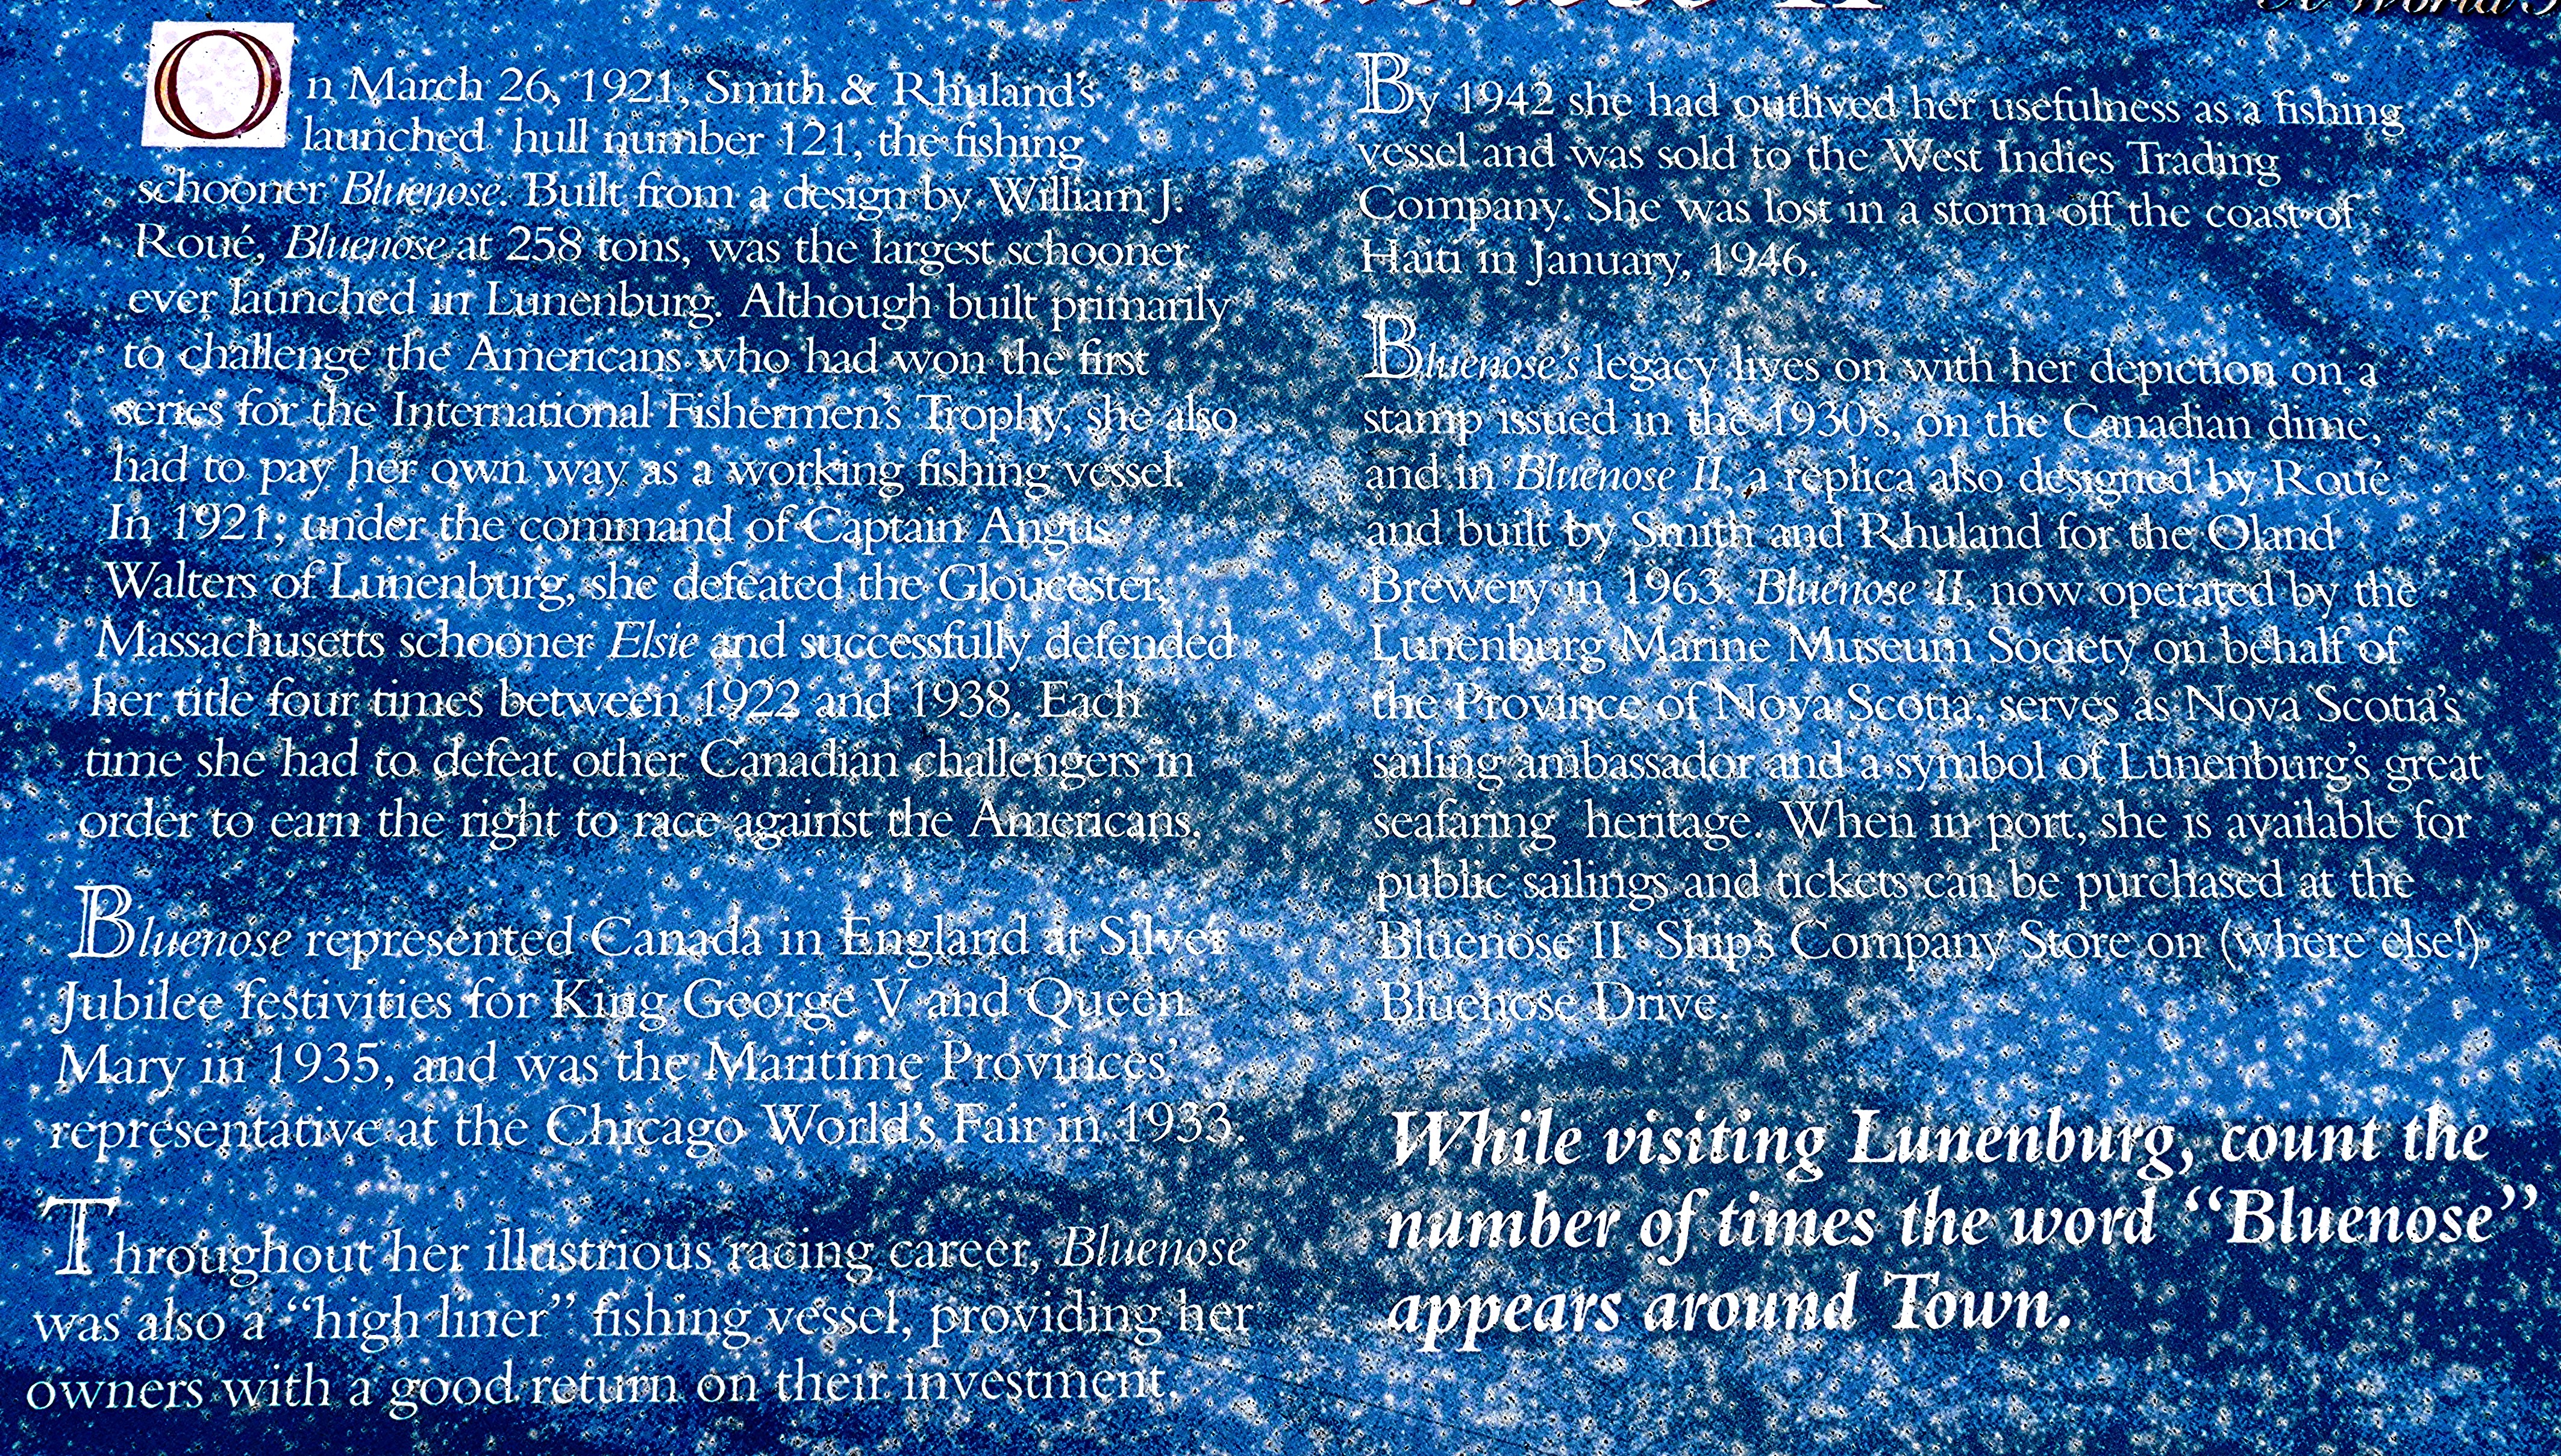 Bluenose II
On March 26, 1921, Smith & Rhuland's
launched hull number 121, the fishing
schooner Bluenose. Built from a design by William J.
Roué, Bluenose at 258 tons, was the largest schooner
ever launched in Lunenburg. Although built primarily
to challenge the Americans who had won the first
series for the International Fishermen's Trophy, she also
had to pay her own way as a working fishing vessel.
In 1921, under the command of Captain Angus
Walters of Lunenburg, she defeated the Gloucester,
Massachusetts schooner Elsie and successfully defended
her title four times between 1922 and 1938. Each
time she had to defeat other Canadian challengers in
order to earn the right to race against the Americans.
Bluenose represented Canada in England at Silver
Jubilee festivities for King George V and Queen
Mary in 1935, and was the Maritime Provinces'
representative at the Chicago World's Fair in 1933.
Throughout her illustrious racing career, Bluenose
was also a “high liner” fishing vessel, providing her
owners with a good return on their investment.
By 1942 she had outlived her usefulness as a fishing
vessel and was sold to the West Indies Trading
Company. She was lost in a storm off the coast of
Haiti in January, 1946.
Bluenose's legacy lives on with her depiction on a
stamp issued in the 1930's, on the Canadian dime,
and in Bluenose II, a replica also designed by Roué
and built by Smith and Rhuland for the Oland
Brewery in 1963. Bluenose II, now operated by the
Lunenburg Marine Museum Society on behalf of
the Province of Nova Scotia, serves as Nova Scotia's
sailing ambassador and a symbol of Lunenburg's great
seafaring heritage. When in port, she is available for
public sailings and tickets can be purchased at the
Bluenose II Ship's Company Store on (where else!)
Bluenose Drive.
While visiting Lunenburg, count the
number of times the word “Bluenose”
appears around Town.